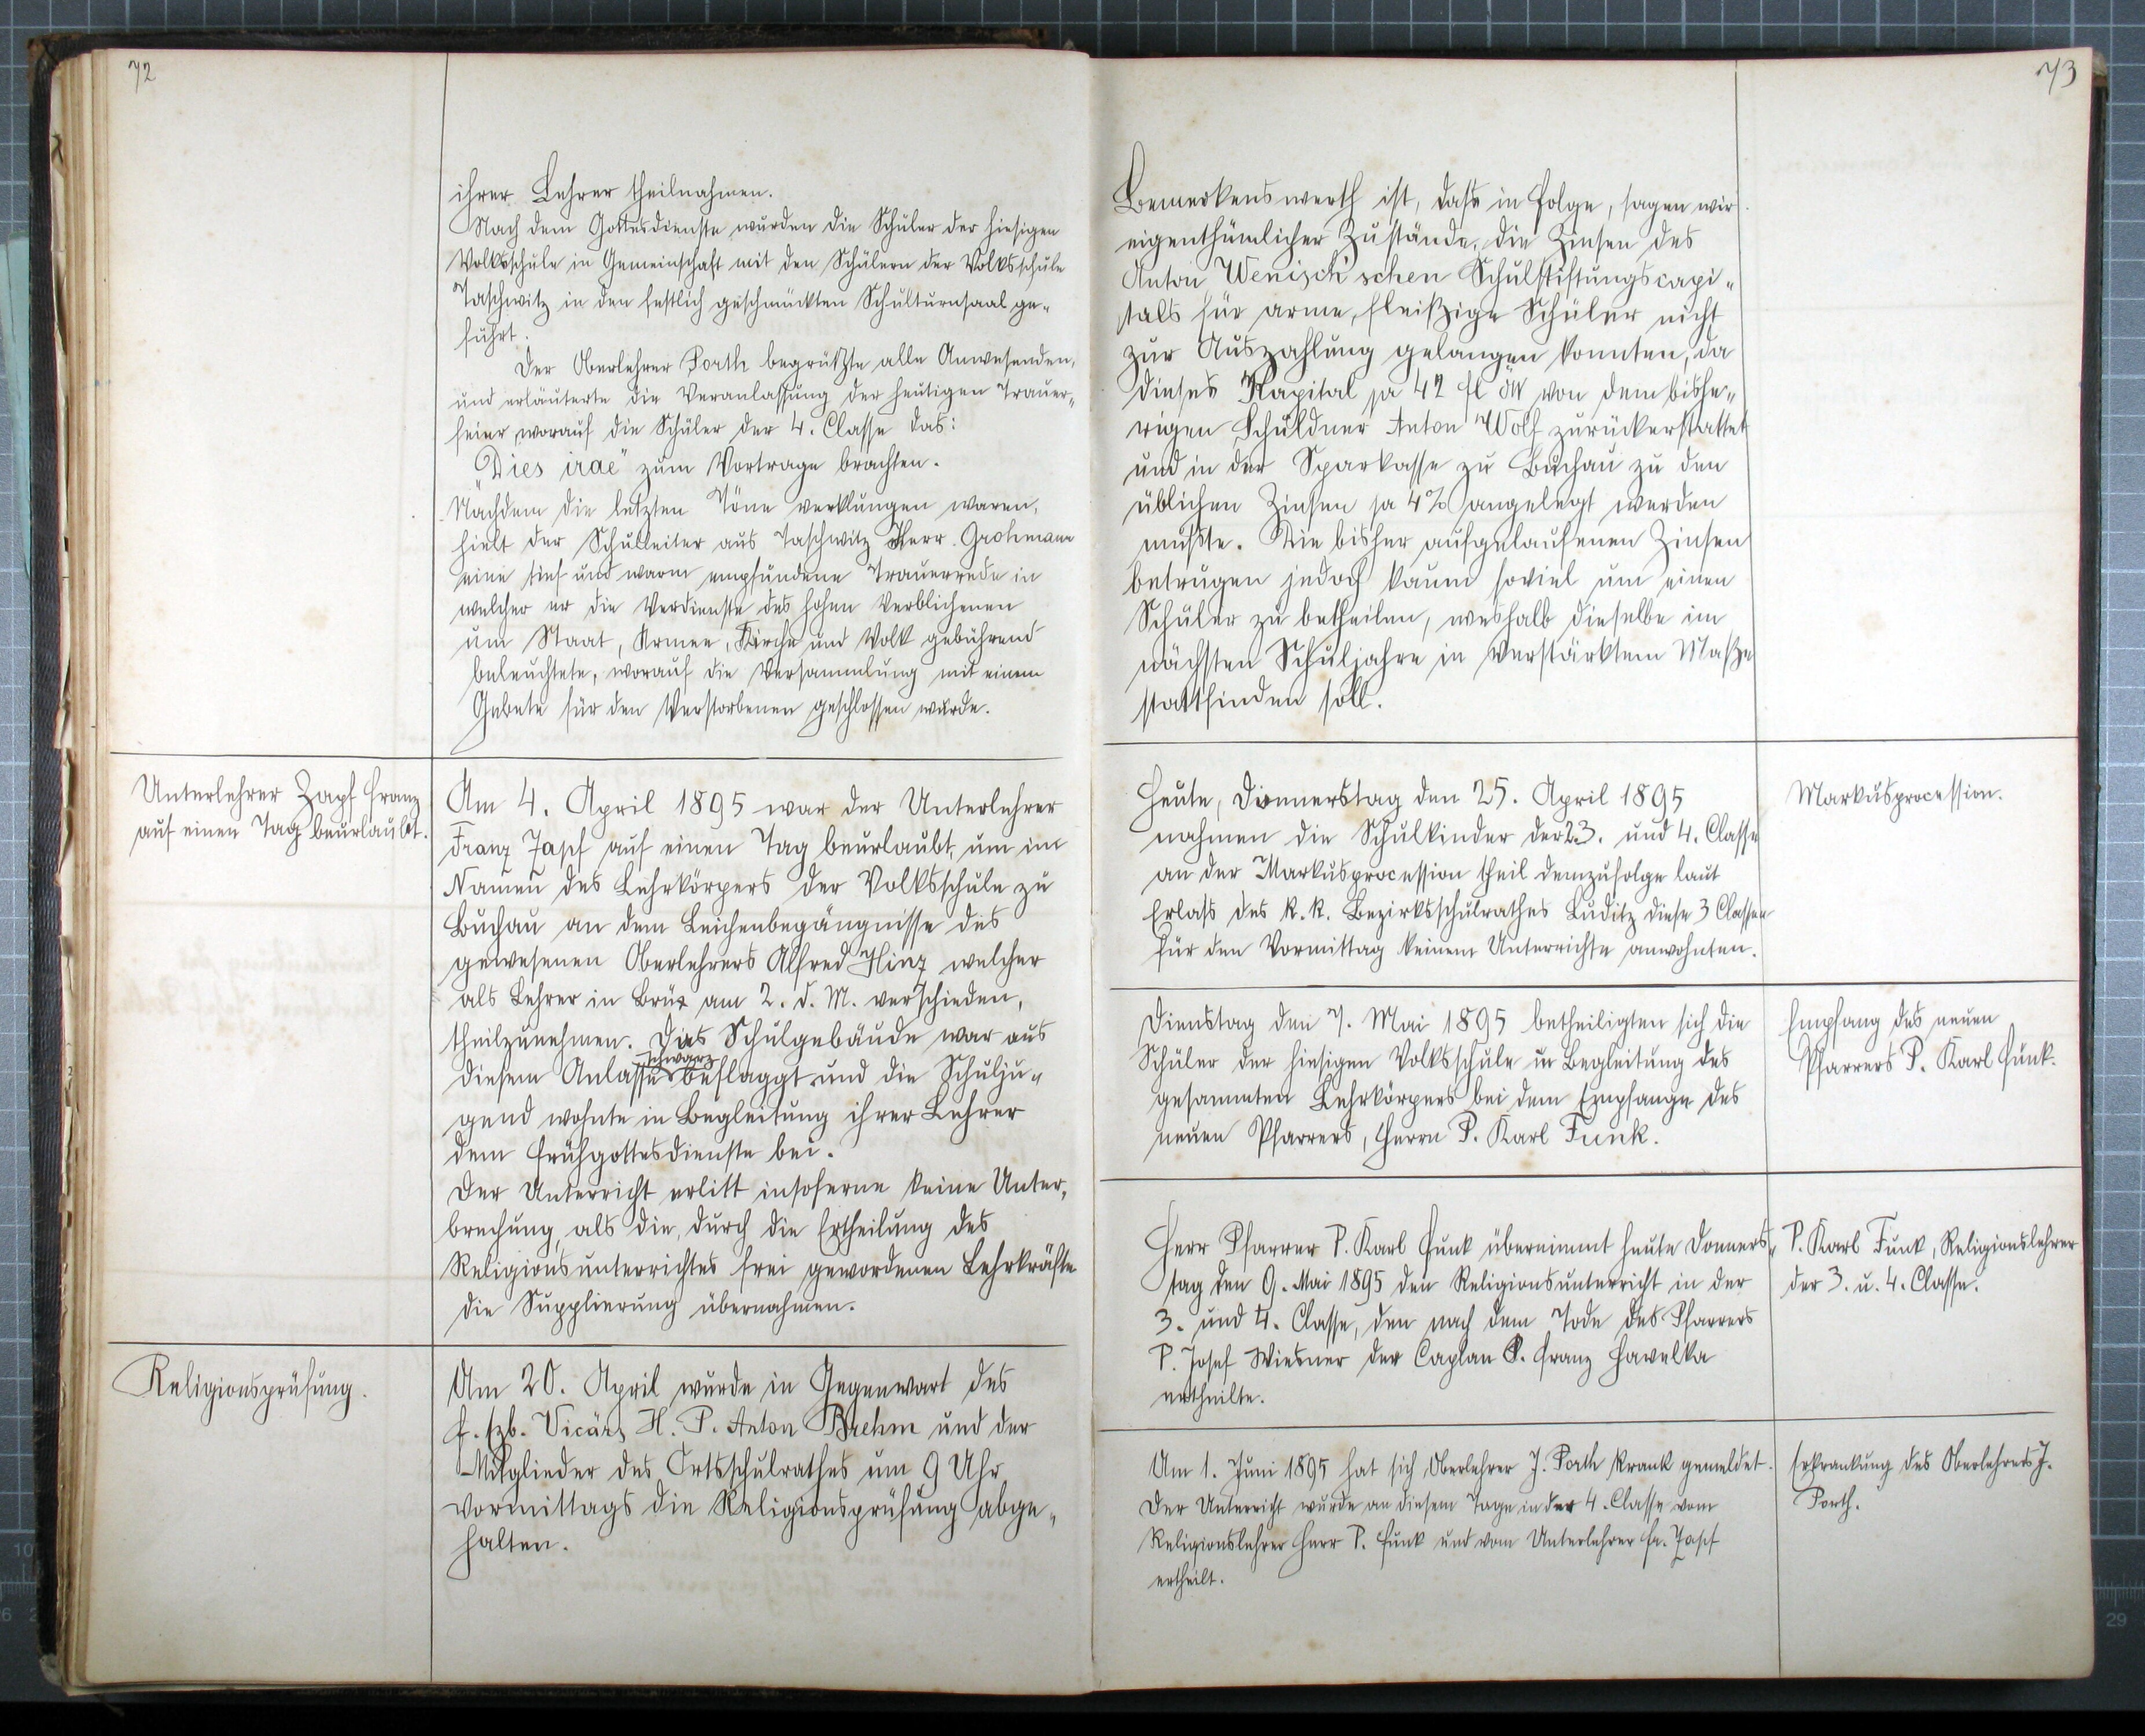 72
ihrer Lehrer theilnahmen.
Nach dem Gottesdienste wurden die Schüler der hiesigen
Volksschule in Gemeinschaft mit den Schülern der Volksschule
Taschwitz in den festlich geschmückten Schulturnsaal ge-
führt.
Der Oberlehrer Porth begrüßte alle Anwesenden,
und erläuterte die Veranlassung der heutigen Trauer-
feier, worauf die Schüler der 4. Classe das:
„Dies irae" zum Vortrage brachten.
Nachdem die letzten Töne verklungen waren,
hielt der Schulleiter aus Taschwitz Herr Grohmann
eine tief und warm empfundene Trauerrede in
welcher er die Verdienste des hohen Verblichenen
um Staat, Armee, Kirche und Volk gebührend
beleuchtete, worauf die Versammlung mit einem
Gebete für den Verstorbenen geschlossen wurde.
Unterlehrer Zapf Franz
auf einen Tag beurlaubt.
Am 4. April 1895 war der Unterlehrer
Franz Zapf auf einen Tag beurlaubt, um im
Namen des Lehrkörpers der Volksschule zu
Buchau an dem Leichenbegängnisse des
gewesenen Oberlehrers Alfred Hinz welcher
als Lehrer in Brüx am 2. d. M. verschieden,
theilzunehmen. Das Schulgebäude war aus
diesem Anlasse schwarz beflaggt und die Schulju-
gend wohnte in Begleitung ihrer Lehrer
dem Frühgottesdienste bei.
Der Unterricht erlitt insoferne keine Unter-
brechung, als die, durch die Ertheilung des
Religionsunterrichtes frei gewordenen Lehrkräfte
die Supplierung übernahmen.
Religionsprüfung.
Am 20. April wurde in Gegenwart des
f. erzb. Vicärs H. P. Anton Brehm und der
Mitglieder des Ortsschulrathes um 9 Uhr
vormittags die Religionsprüfung abge-
halten.
73
Bemerkenswerth ist, dass in Folge, sagen wir
eigenthümlicher Zustände, die Zinsen des
Anton Wenisch'schen Schulstiftungscapi-
tals für arme, fleißige Schüler nicht
zur Auszahlung gelangen konnten, da
dieses Kapital pa 42 fl öW von dem bishe-
rigen Schuldner Anton Wolf zurückerstattet
und in der Sparkasse zu Buchau zu den
üblichen Zinsen pa 4% angelegt werden
mußte. Die bisher aufgelaufenen Zinsen
betrugen jedoch kaum soviel um einen
Schüler zu betheilen, weshalb dieselbe im
nächsten Schuljahre in verstärktem Maße
stattfinden soll.
Heute, Donnerstag den 25. April 1895
nahmen die Schulkinder der 2. 3. und 4. Classe
an der Markusprocession theil demzufolge laut
Erlaß des k. k. Bezirksschulrathes Luditz diese 3 Classen
für den Vormittag keinem Unterrichte anwohnten.
Markusprocession.
Dienstag den 7. Mai 1895 betheiligten sich die
Schüler der hiesigen Volksschule in Begleitung des
gesammten Lehrkörpers bei dem Empfange des
neuen Pfarrers, Herrn P. Karl Funk.
Empfang des neuen
Pfarrers P. Karl Funk.
Herr Pfarrer P. Karl Funk übernimmt heute Donners-
tag den 9. Mai 1895 den Religionsunterricht in der
3. und 4. Classe, den nach dem Tode des Pfarrers
P. Josef Wiesner der Caplan P. Franz Havelka
ertheilte.
P. Karl Funk, Religionslehrer
der 3. u. 4. Classe.
Am 1. Juni 1895 hat sich Oberlehrer J. Porth krank gemeldet.
Der Unterricht wurde an diesem Tage in der 4. Classe vom
Religionslehrer Herr P. Funk und vom Unterlehrer Fr. Zapf
ertheilt.
Erkrankung des Oberlehrers J.
Porth.